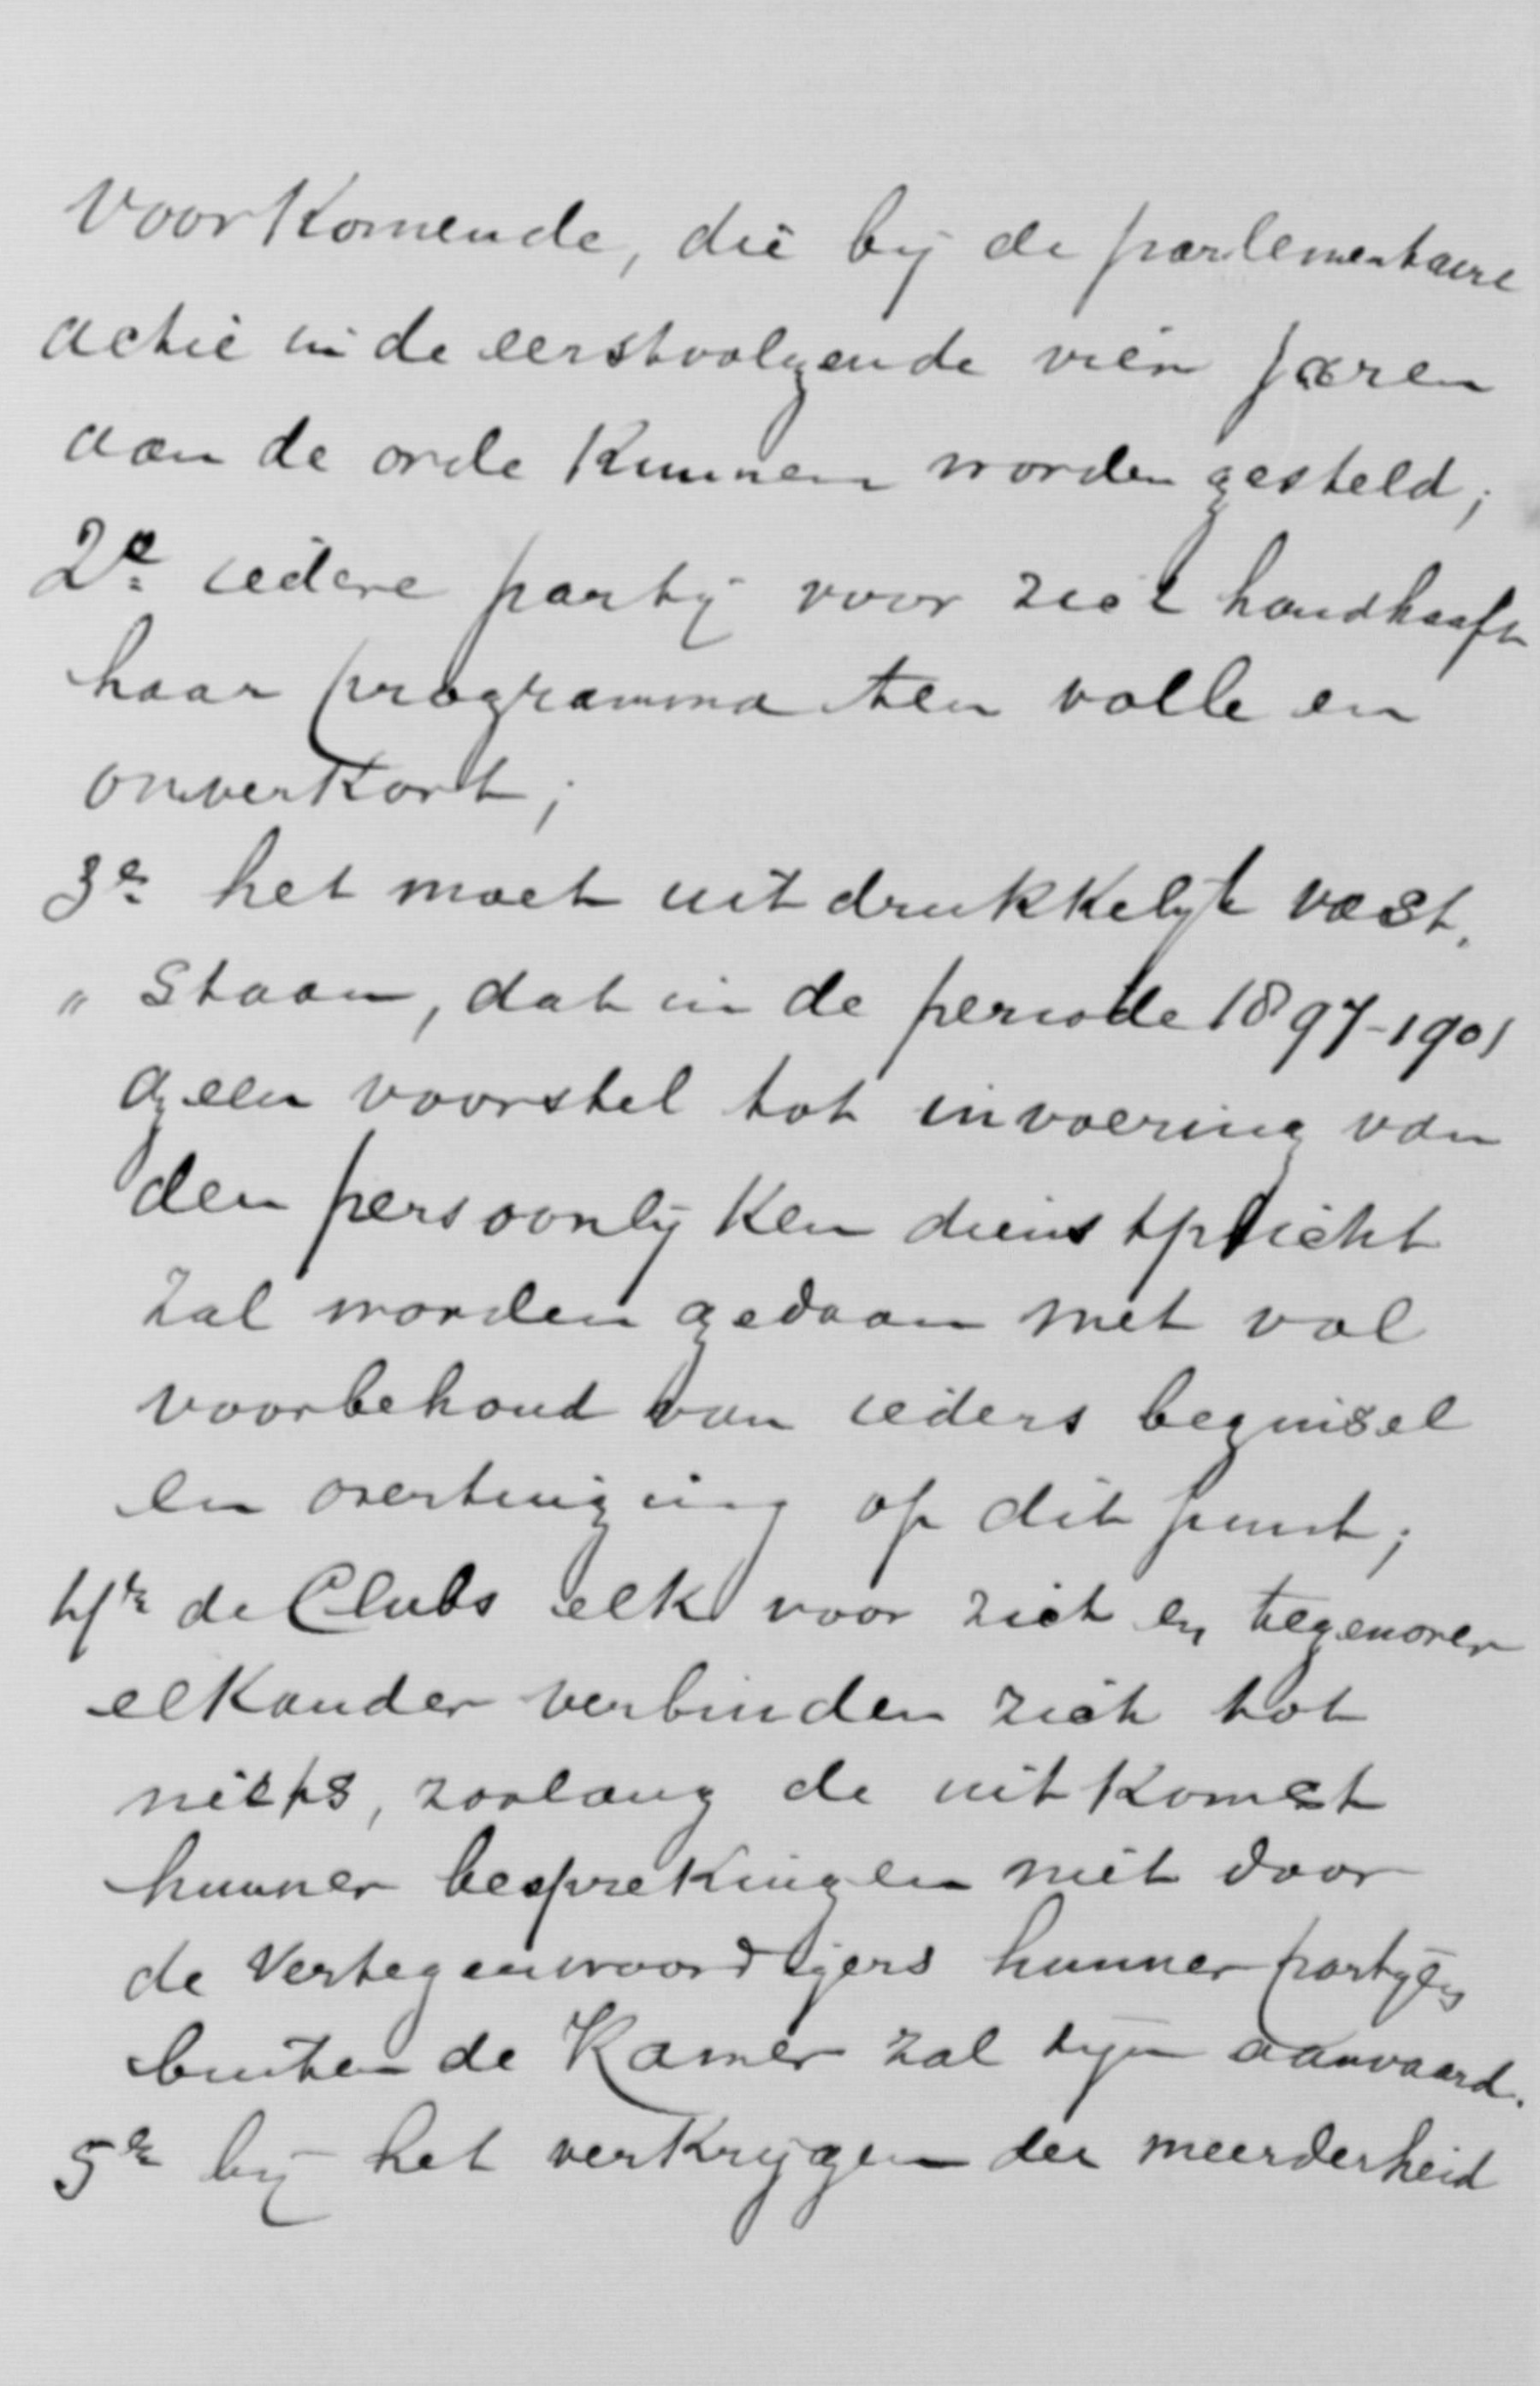 voorkomende, die bij de parlementaire
actie in de eerstvolgende vier jaren
aan de orde kunnen worden gesteld;
2e iedere partij voor zich handhaaft
haar programma ten volle en
onverkort;
3e het moet uitdrukkelijk vast,
„ staan, dat in de periode 1897-1901
geen voorstel tot invoering van
den persoonlijken dienstplicht
zal worden gedaan met vol
voorbehoud van ieders beginsel
en overtuiging op dit punt;
4e de Clubs elk voor zich en tegenover
elkander verbinden zich tot
niets, zoolang de uitkomst
hunner besprekingen niet door
de Vertegenwoordigers hunner partijen
buiten de Kamer zal zijn aanvaard.
5e bij het verkrijgen der meerderheid